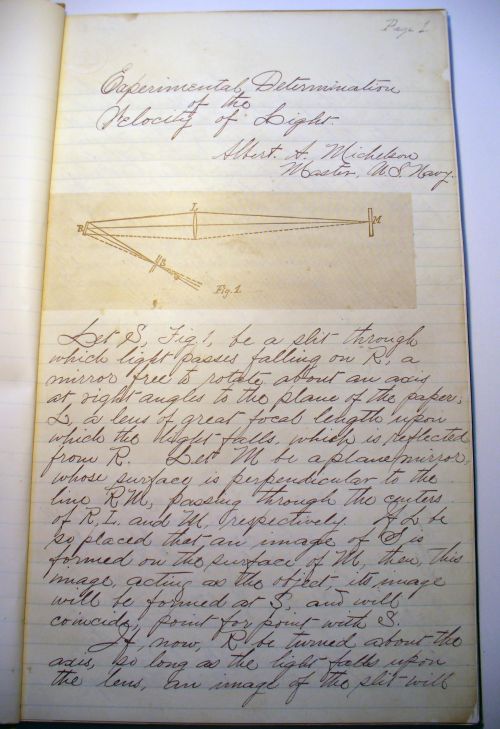 Page 1
Experimental Determination
of the
Velocity of Light.
Albert. A. Michelson
Master, U.S. Navy.
L
R
M
S
Fig. 1.
Let S, Fig. 1, be a slit through
which light passes falling on R, a
mirror free to rotate about an axis
at right angles to the plane of the paper;
L, a lens of great focal length, upon
which the light falls, which is reflected
from R. Let M be a plane mirror,
whose surface is perpendicular to the
line R.M, passing through the centers
of R, L. and M, respectively. If L be
so placed that an image of S is
formed on the surface of M, then, this
image, acting as the object, its image
will be formed at S, and will
coincide, point for point with S.
If, now, R, be turned about the
axis, so long as the light falls upon
the lens, an image of the slit will